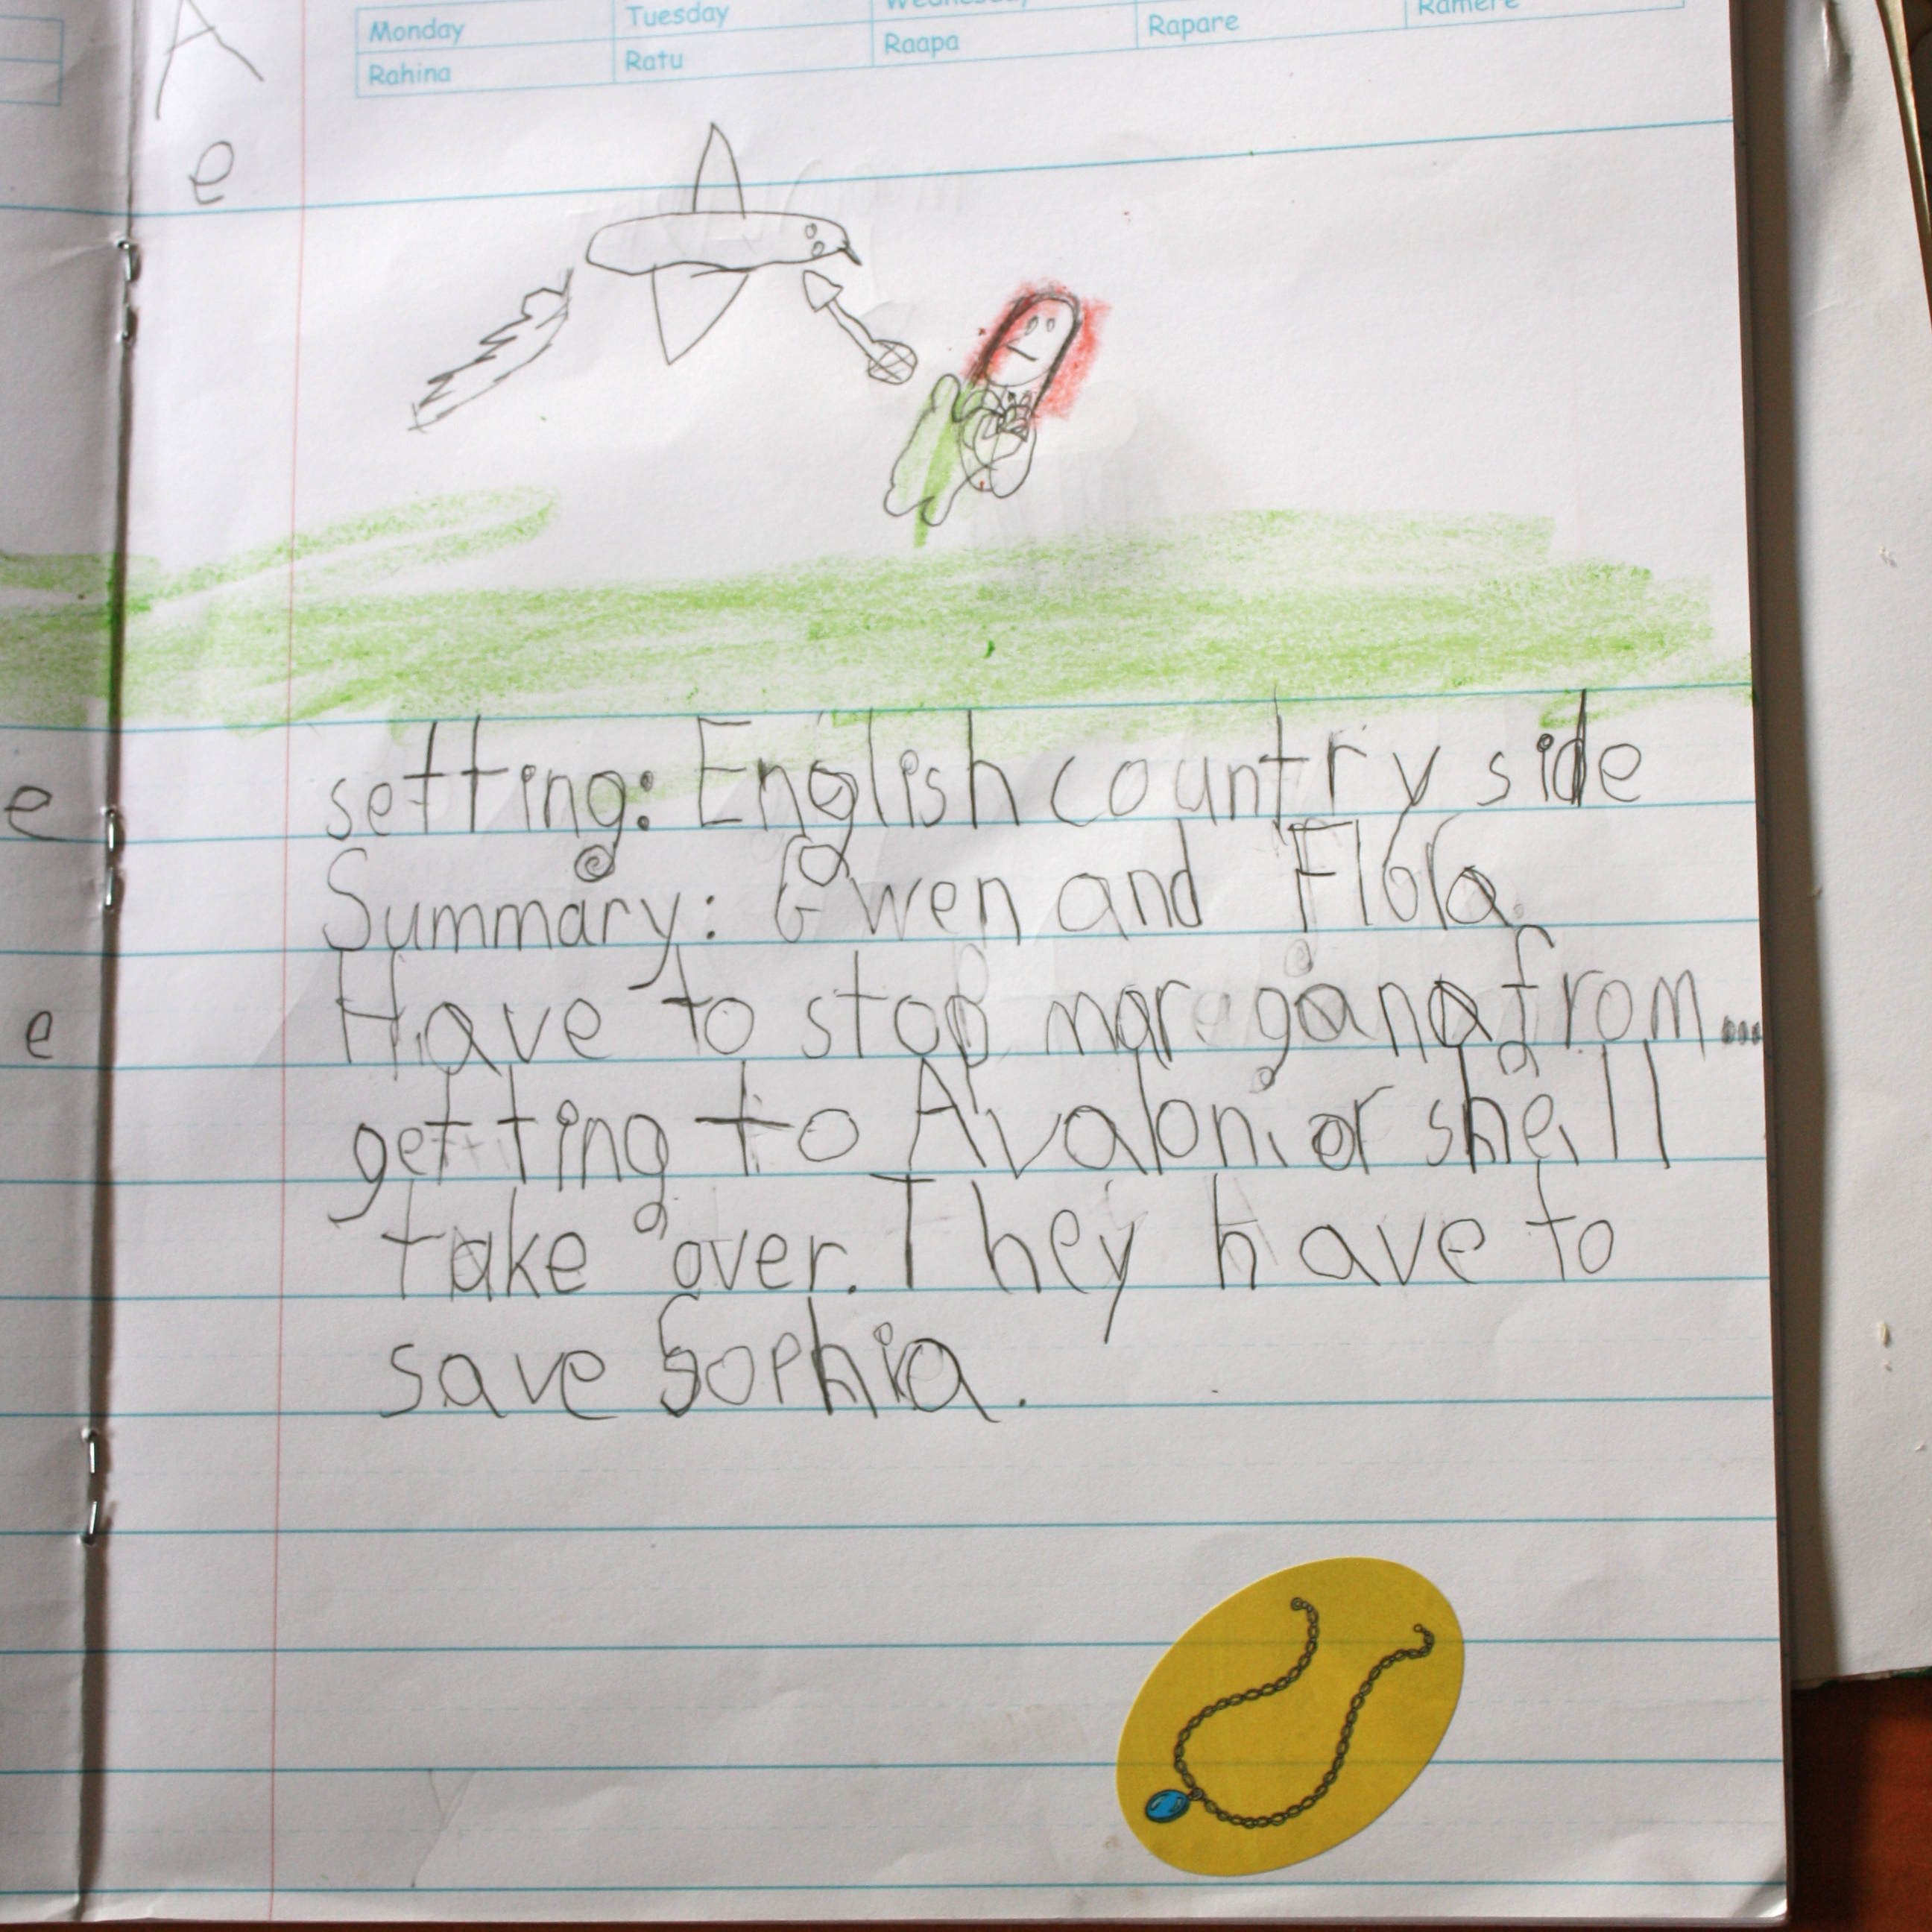 A
Monday Tuesday Wednesday
Rahina Ratu Raapa Rapare Ramere
e
e setting: English country side
Summary: Gwen and Flora.
e Have to stop mor gana from...
getting to Avalon or she'll
take over. They have to
save Sophia.